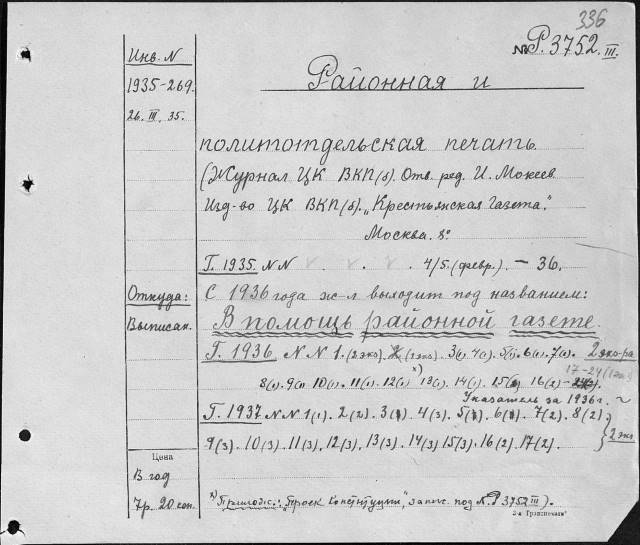 336
№ Р. 3752 III.
Инв. N
1935-269.
26. III. 35.
Районная и
политотдельская печать.
(Журнал ЦК ВКП(б). Отв. ред. И. Мокеев
Изд-во ЦК ВКП(б). „Крестьянская Газета."
Москва. 8°
Г. 1935. NN 4/5. (февр.) – 36.
Откуда:
Выписан.
С 1936 года ж-л выходит под названием:
В помощь районной газете.
Г. 1936 NN 1. (2экз.) (2экз.) 3(1) 4(1). 5(1). 6(1). 7(1). 2 экз-ра
17-24 (1экз.)
8(1). 9(1) 10(1). 11(1). 12(1) х) 13(1). 14(1). 15 16(2)
Указатель за 1936г.
Г. 1937. NN 1(1). 2(2). 3 4(3). 5 6 7(2). 8(2).
9(3). 10(3). 11(3). 12(3). 13(3). 14(3) 15(3). 16(2) 17(2). } 2 экз
Цена
В год
7р. 20 коп.
х) Прилож.: „Проек Конституции", запис. под № Р 3752 III).
2-я Гранпечать